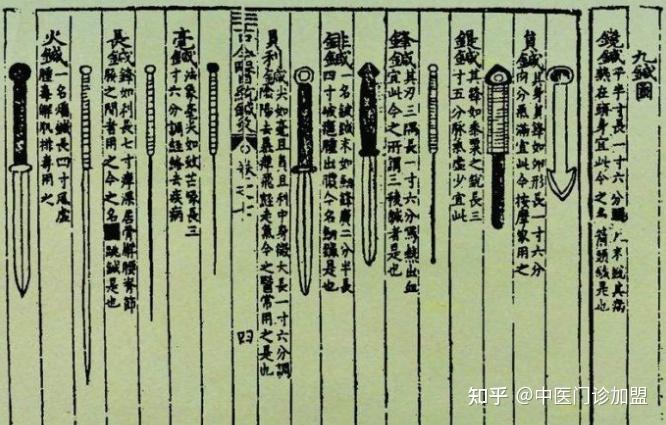 九鍼圖
鑱鍼
平半寸長一寸六分
末銳其病
熱在頭身宜此今之名箭頭鍼是也
員鍼
其身員鋒如卵形長一寸六分
肉分氣滿宜此今按摩家用之
鍉鍼
其鋒如黍粟之銳長三
寸五分脉氣虛少宜此
鋒鍼
其刃三隅長一寸六分
熱出血
宜此今之所謂三稜鍼者是也
鍼
一名鈹鍼末如劍鋒廣二分半長
四寸破癰腫出膿今名劍鍼是也
員利鍼
尖如毫且員且利中身微大長一寸六分調
陰陽去暴痺飛經走氣今之醫常用之是也
四
毫鍼
法象毫尖如蚊芒喙長三
寸六分調經絡去疾病
長鍼
鋒如利長七寸痺深居骨解腰脊節
腠之間者用之今之名跳鍼是也
火鍼
一名燔鍼長四寸風虛
腫毒解肌排毒用之
知乎 @中医门诊加盟